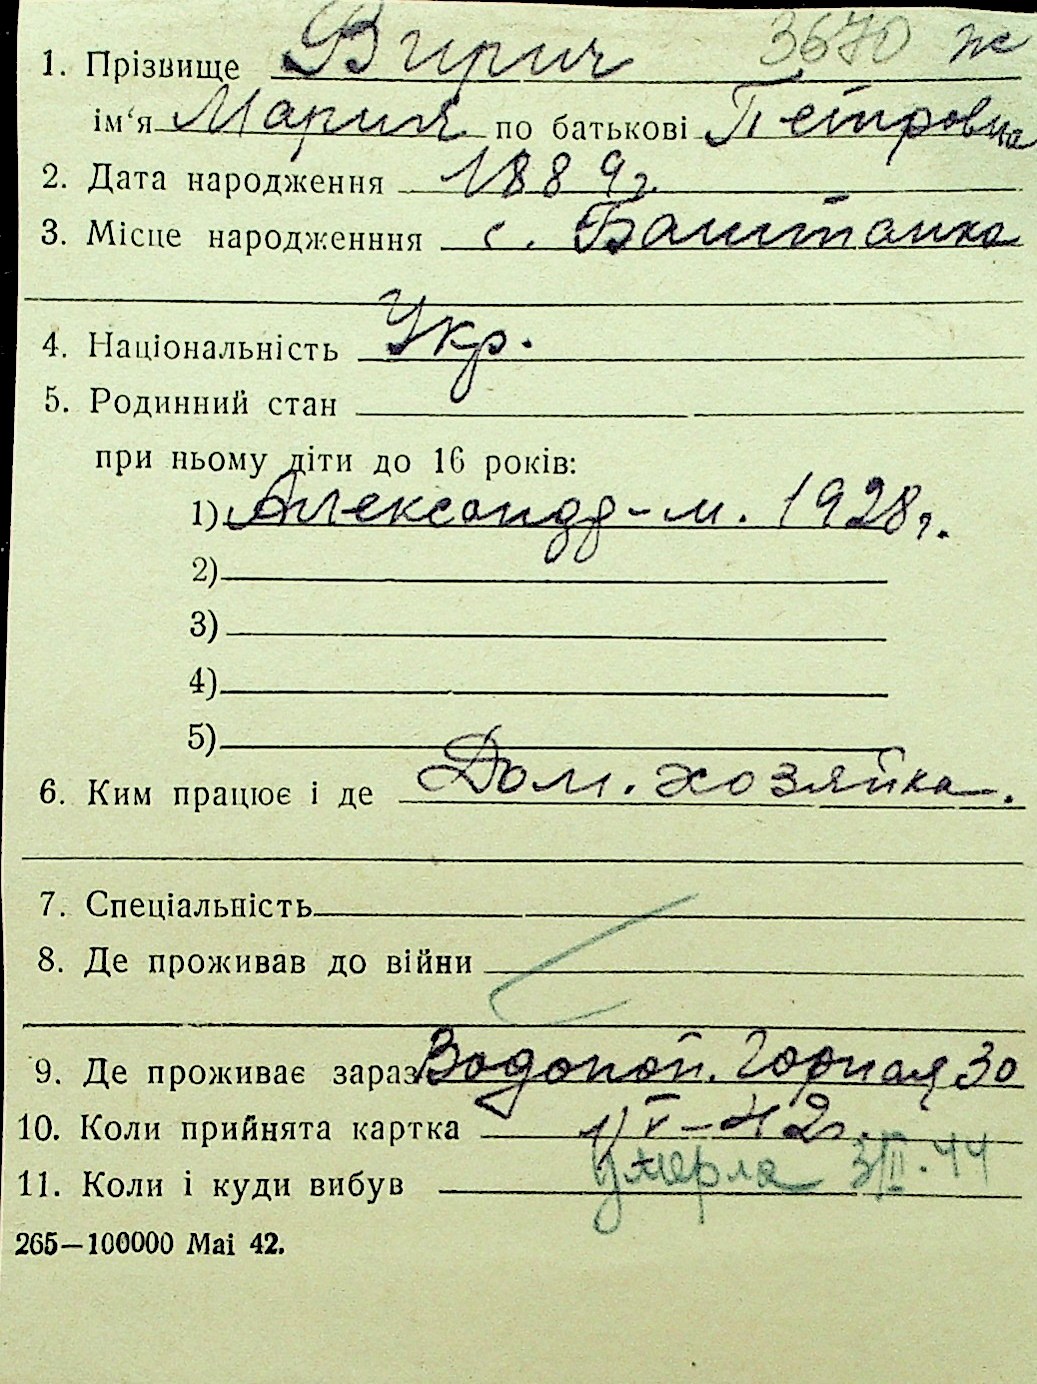 1. Прізвище Вирич 3670 ж
ім‘я Мария по батькові Петровна
2. Дата народження 1889 г.
3. Місце народженння с. Баштанка
4. Національність Укр.
5. Родинний стан
при ньому діти до 16 років:
1) Александр - м. 1928 г.
2)
3)
4)
5)
6. Ким працює і де Дом. хозяйка.
7. Спеціальність
8. Де проживав до війни
9. Де проживає зараз Водопой. Горная 30
10. Коли прийнята картка 1/V-42 г.
11. Коли і куди вибув умерла 3/II.44
265—100000 Mai 42.